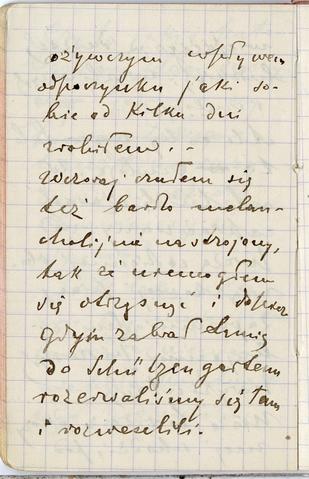 ożywczym wpływem
odpoczynku jaki so-
bie od kilku dni
zrobiłem. -
Wczoraj czułem się
też bardzo melan-
cholijnie nastrojony,
tak że nie mogłem
się otrząsnąć i dopiero
gdym zabrał
do Schützengarten
rozerwaliśmy się tam
i rozweselili.